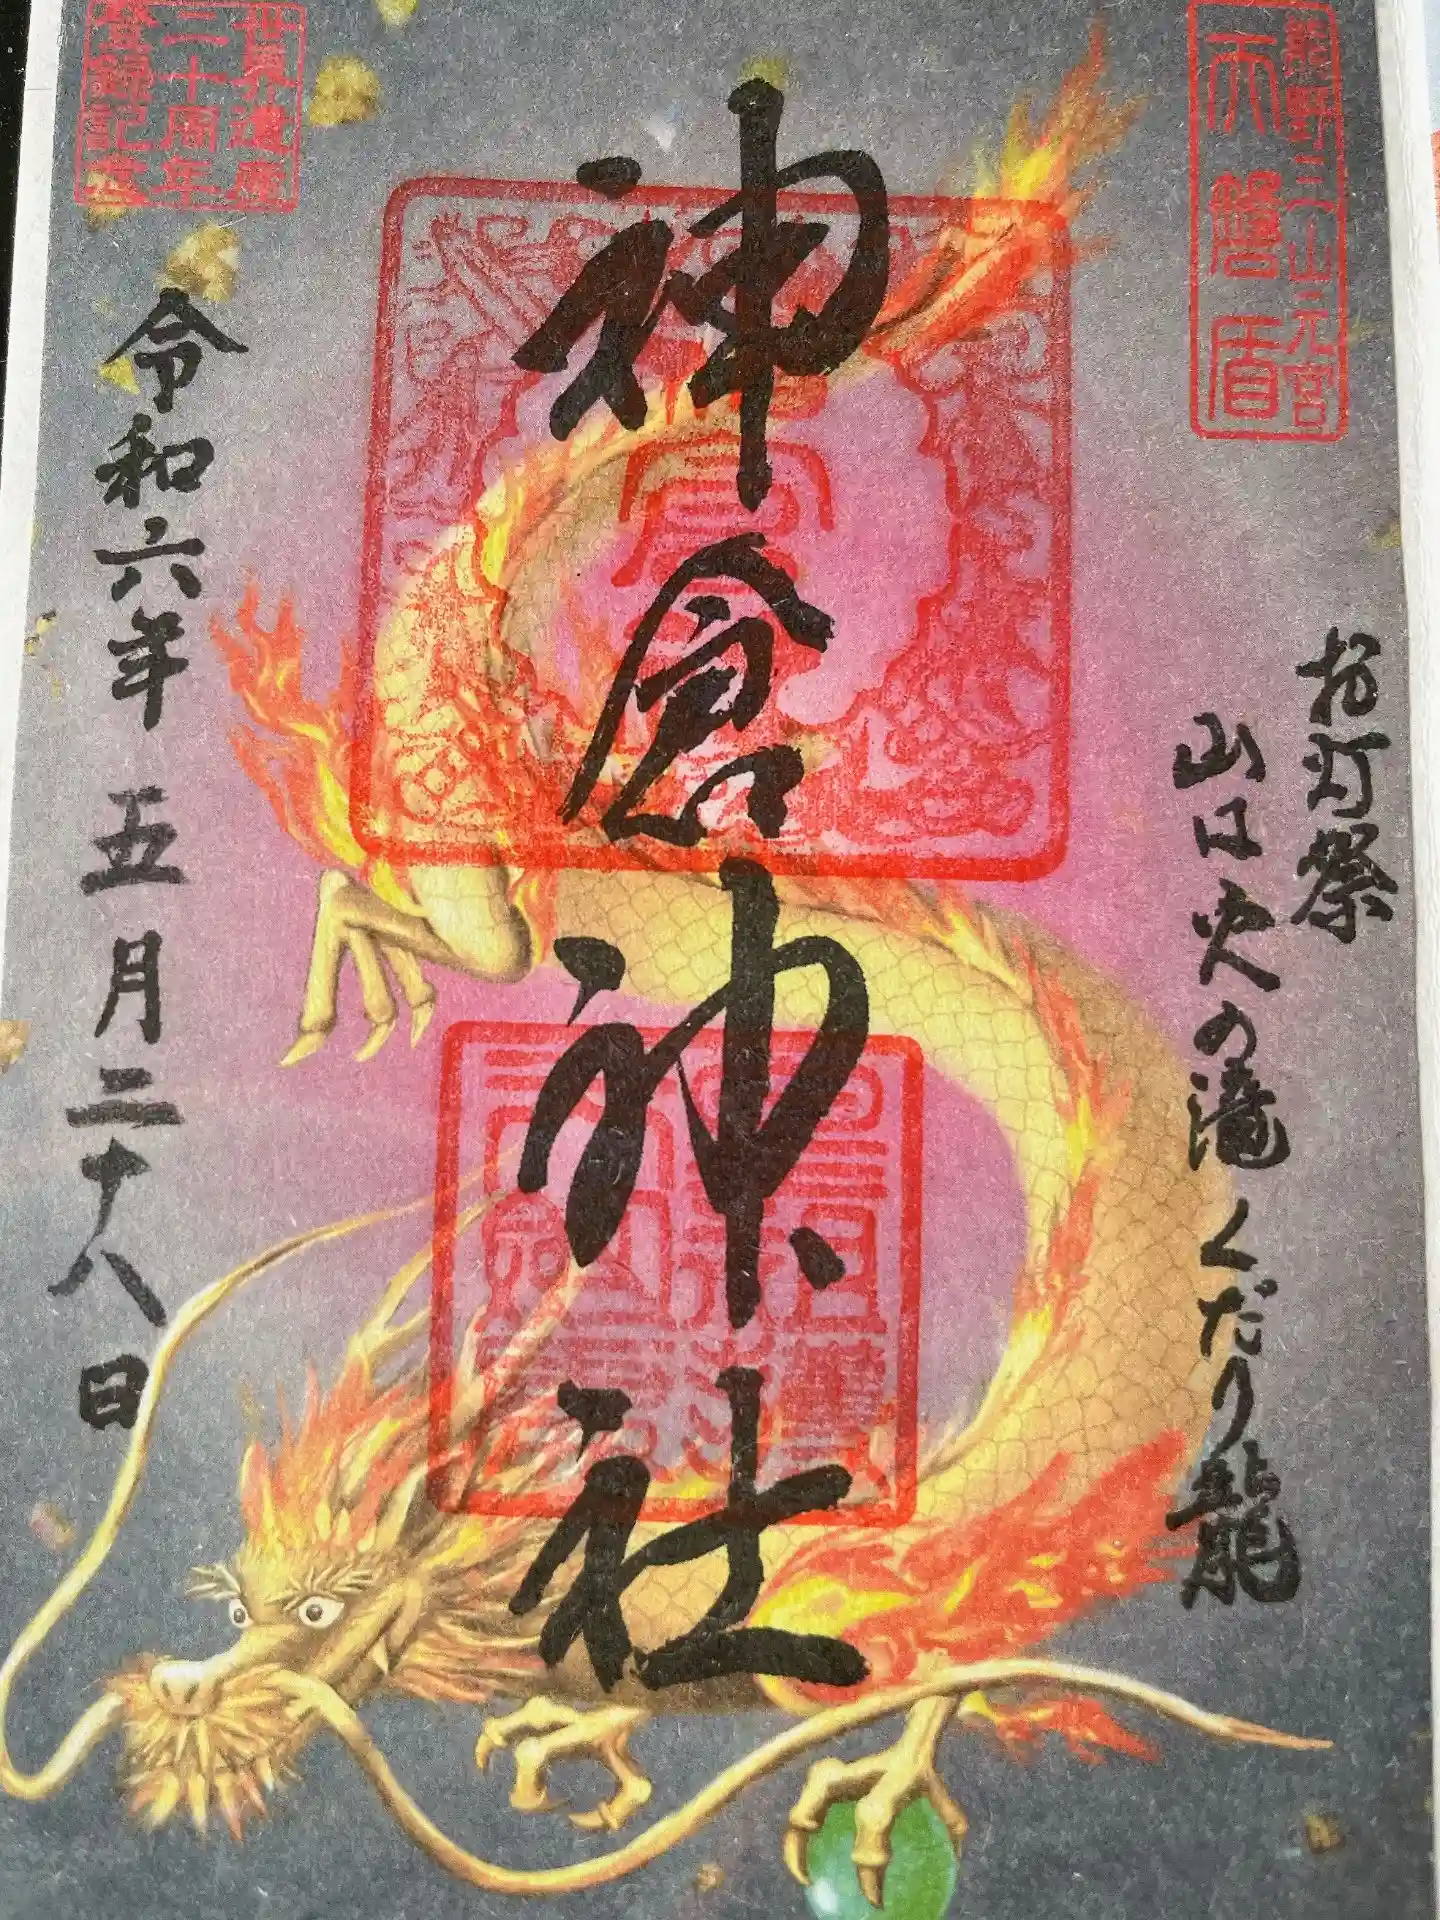 熊野三山元宮
天磐盾
お灯祭
山は火の滝
くだり龍
神倉神社
世界遺産
二十周年
登録記念
令和六年五月二十八日